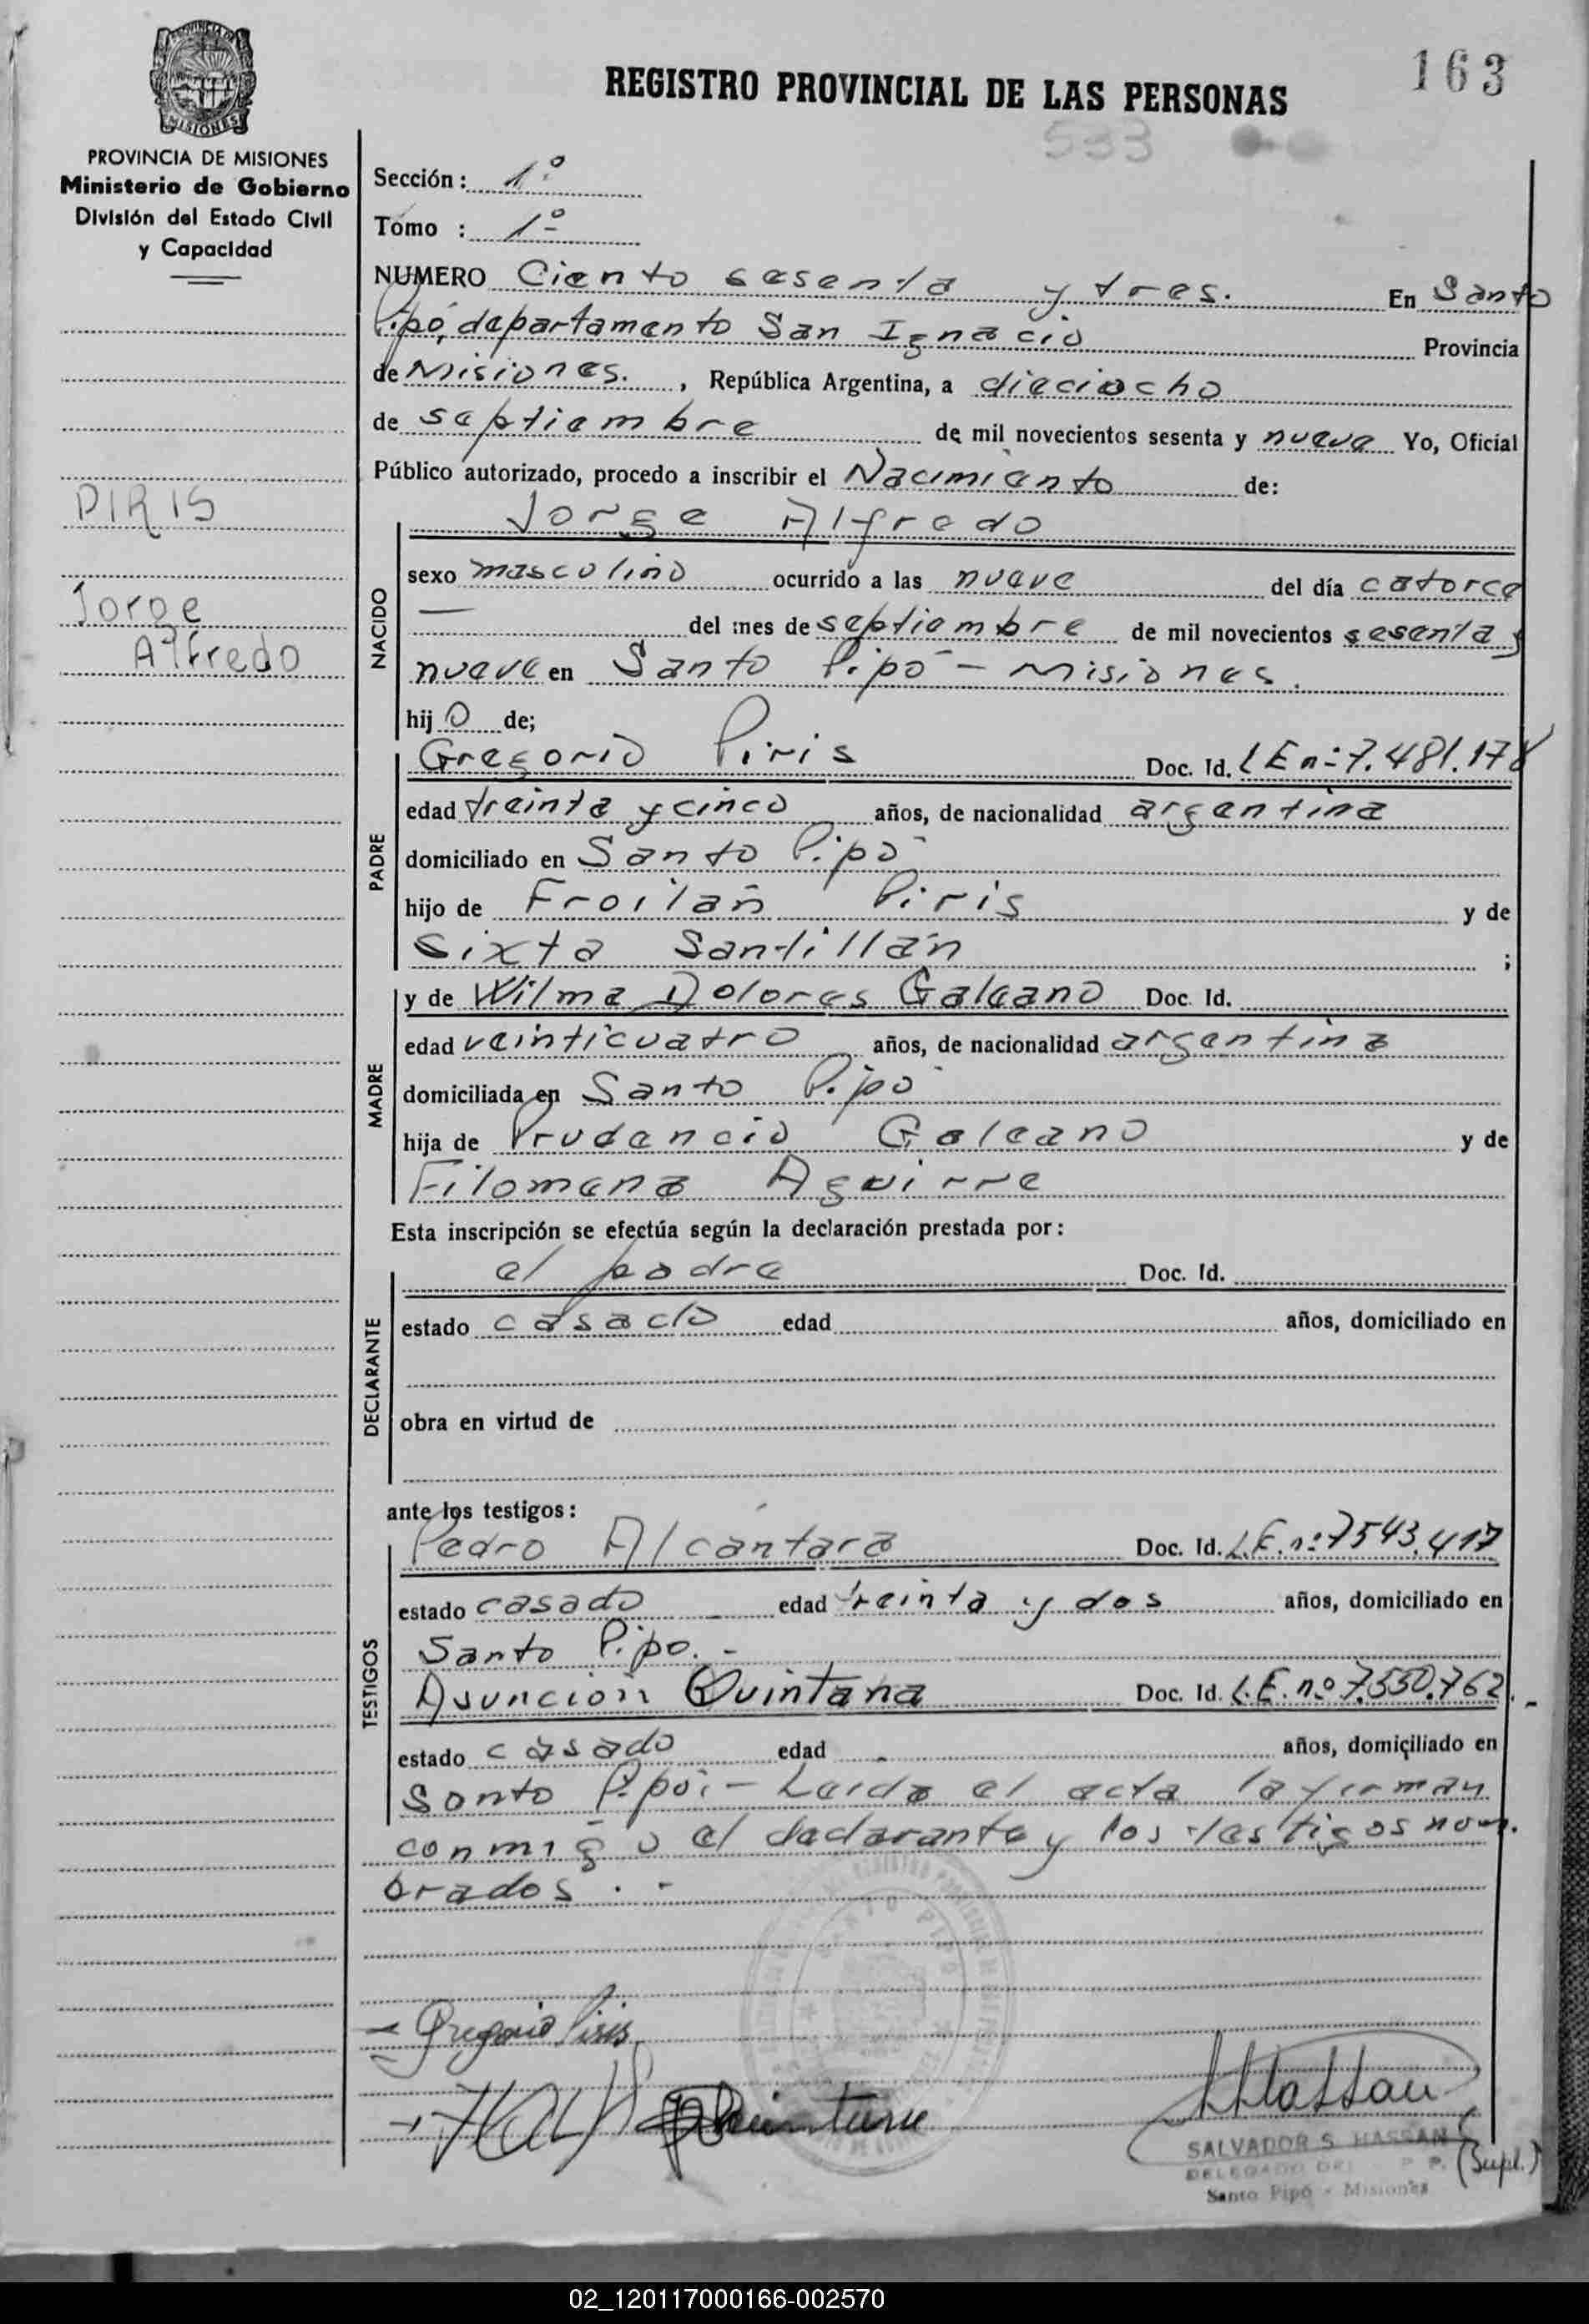 163
REGISTRO PROVINCIAL DE LAS PERSONAS
533
MISIONES
PROVINCIA DE MISIONES
Ministerio de Gobierno
División del Estado Civil
y Capacidad
Sección: 1º
Tomo : 1º
NUMERO Ciento sesenta y tres. En Santo
Pipó, departamento San Ignacio Provincia
de Misiones. , República Argentina, a dieciocho
de septiembre de mil novecientos sesenta y nueve Yo, Oficial
Público autorizado, procedo a inscribir el Nacimiento de:
PIRIS
Jorge
Alfredo
Jorge Alfredo
NACIDO
sexo masculino ocurrido a las nueve del día catorce
— del mes de septiembre de mil novecientos sesenta y
nueve en Santo Pipó - Misiones.
hijo de;
PADRE
Gregorio Piris Doc. Id. LE nº 7.481.178
edad treinta y cinco años, de nacionalidad argentina
domiciliado en Santo Pipó
hijo de Froilán Piris y de
Sixta Santillán ;
MADRE
y de Wilma Dolores Galeano Doc. Id.
edad veinticuatro años, de nacionalidad argentina
domiciliada en Santo Pipó
hija de Prudencio Galeano y de
Filomena Aguirre
Esta inscripción se efectúa según la declaración prestada por:
DECLARANTE
el padre Doc. Id.
estado casado edad años, domiciliado en
obra en virtud de
ante los testigos:
TESTIGOS
Pedro Alcántara Doc. Id. L.E. nº 7543.417
estado casado edad treinta y dos años, domiciliado en
Santo Pipo. -
Asunción Quintana Doc. Id. L.E. nº 7.550.762. -
estado casado edad años, domiciliado en
Santo Pipó. - Leída el acta la firman
conmigo el declarante y los testigos nom-
brados. . -
Gregorio Piris
Quintana
SALVADOR S. HASSAN
(Supl.)
DELEGADO DEL
Santo Pipó - Misiones
02_120117000166-002570